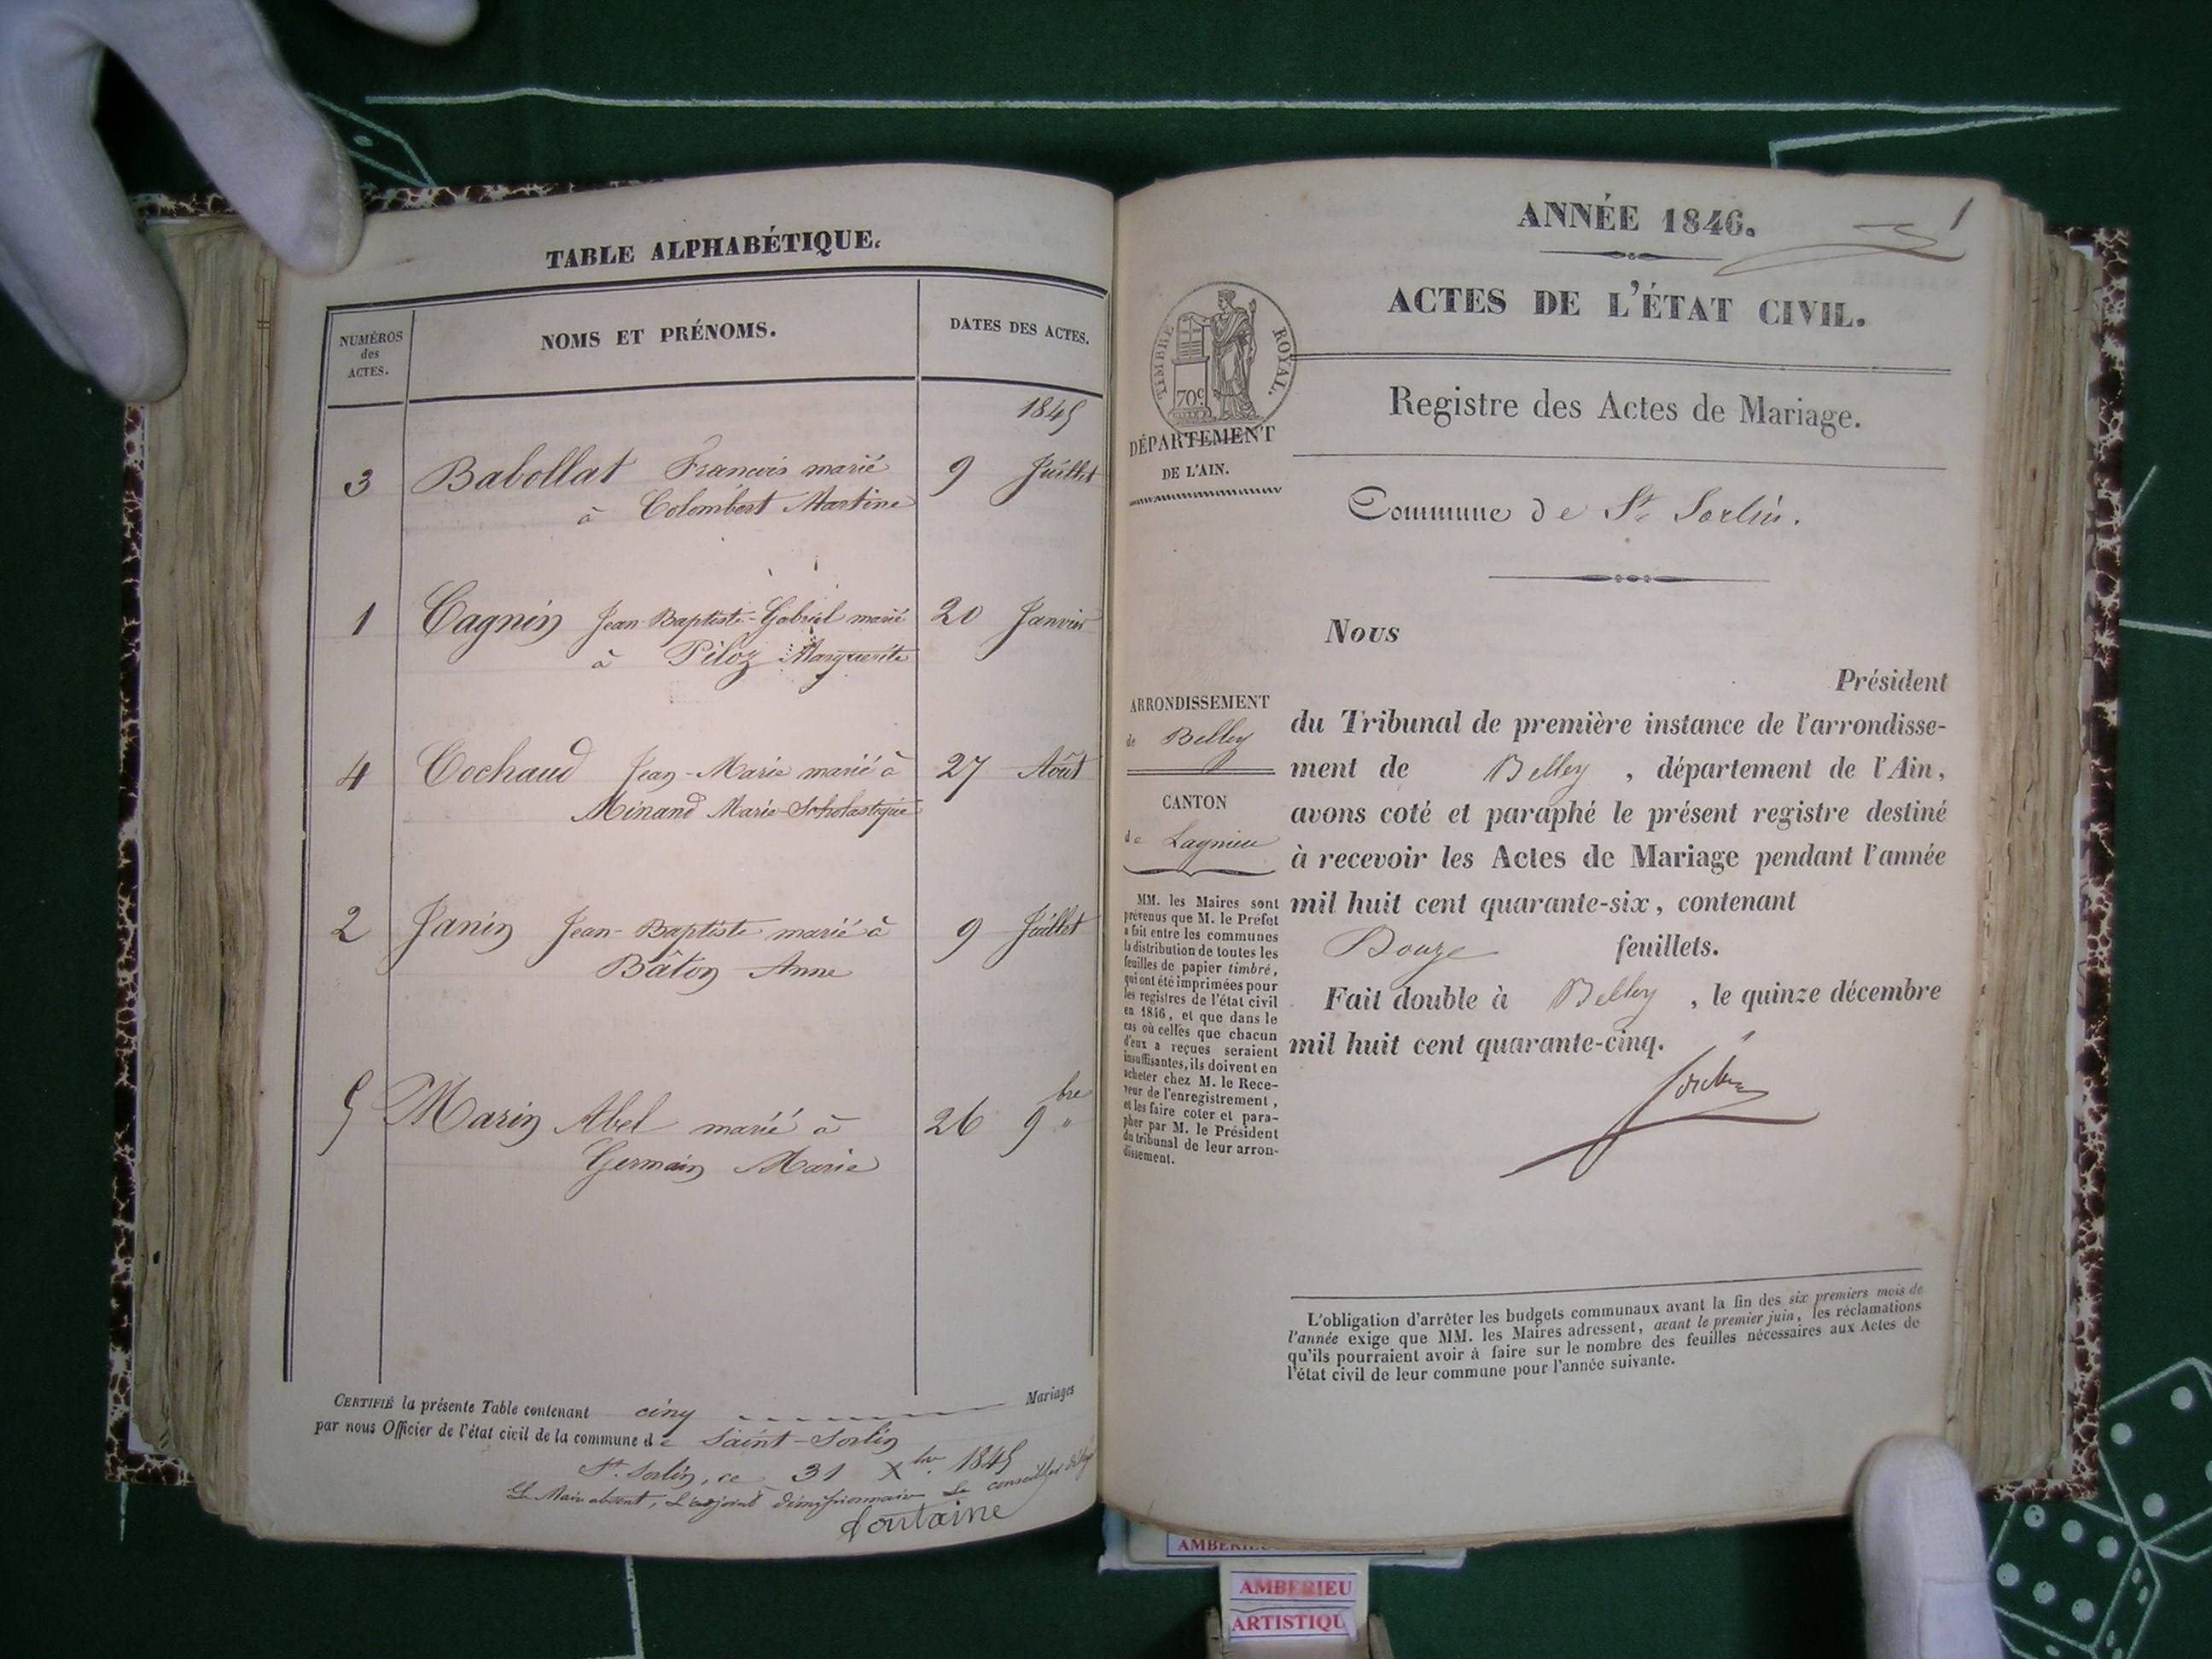 TABLE ALPHABÉTIQUE.
NUMÉROS
des
ACTES.
NOMS ET PRÉNOMS.
DATES DES ACTES.
1845
3 Babollat François marié 9 Juillet
à Colombert Martine
1 Cagnin Jean-Baptiste-Gabriel marié 20 Janvier
à Piloz Marguerite
4 Cochaud Jean-Marie marié à 27 Août
Minand Marie-Scholastique
2 Janin Jean-Baptiste marié à 9 Juillet
Bâton Anne
5 Marin Abel marié à 26 9bre "
Germain Marie
CERTIFIÉ la présente Table contenant cinq Mariages
par nous Officier de l'état civil de la commune de Saint-Sorlin
St. Sorlin, ce 31 Xbre 1845
Le Maire absent, L'adjoint démissionnaire Le conseiller
fontaine
ANNÉE 1846.
1
ACTES DE L'ÉTAT CIVIL.
TIMBRE ROYAL.
70c
DÉPARTEMENT
DE L'AIN.
Registre des Actes de Mariage.
Commune de St Sorlin.
ARRONDISSEMENT
de Belley
CANTON
de Lagnieu
MM. les Maires sont
prévenus que M. le Préfet
a fait entre les communes
la distribution de toutes les
feuilles de papier timbré,
qui ont été imprimées pour
les registres de l'état civil
en 1846, et que dans le
cas où celles que chacun
d'eux a reçues seraient
insuffisantes, ils doivent en
acheter chez M. le Rece-
veur de l'enregistrement,
et les faire coter et para-
pher par M. le Président
du tribunal de leur arron-
dissement.
Nous
Président
du Tribunal de première instance de l'arrondisse-
ment de Belley, département de l'Ain,
avons coté et paraphé le présent registre destiné
à recevoir les Actes de Mariage pendant l'année
mil huit cent quarante-six, contenant
Douze feuillets.
Fait double à Belley, le quinze décembre
mil huit cent quarante-cinq.
L'obligation d'arrêter les budgets communaux avant la fin des six premiers mois de
l'année exige que MM. les Maires adressent, avant le premier juin, les réclamations
qu'ils pourraient avoir à faire sur le nombre des feuilles nécessaires aux Actes de
l'état civil de leur commune pour l'année suivante.
AMBERIEU
ARTISTIQU